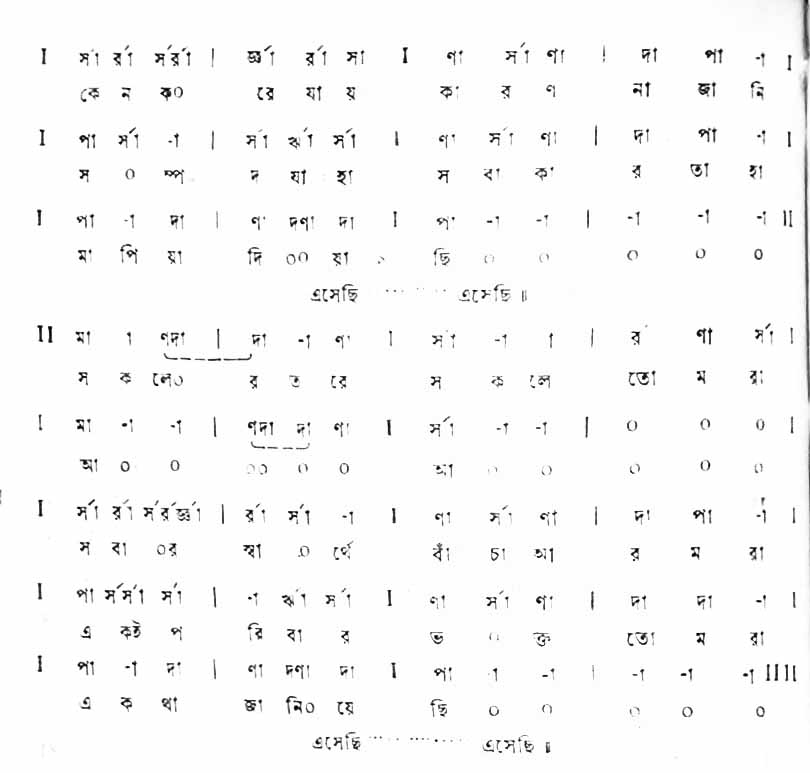 I র্সা র্রা র্সর্রা | র্জ্ঞা র্রা সা I ণা র্সা ণা | দা পা -া I
কে ন ক০ রে যা য় কা র ণ না জা নি
I পা র্সা -া | র্সা র্ঋা র্সা I ণা র্সা ণা | দা পা -া I
স ০ ম্প দ যা হা স বা কা র তা হা
I পা -া দা | ণা দণা দা I পা -া -া | -া -া -া II
মা পি য়া দি ০০ য়া ছি ০ ০ ০ ০ ০
এসেছি ......... এসেছি ॥
II মা া ণদা | দা -া ণা I র্সা -া া | র্র ণা র্সা I
স ক লে০ র ত রে স ক লে তো ম রা
I মা -া -া | ণদা দা ণা I র্সা -া -া | ০ ০ ০ I
আ ০ ০ ০০ ০ ০ আ ০ ০ ০ ০ ০
I র্সা র্রা র্সর্রর্জ্ঞা | র্রা র্সা -া I ণা র্সা ণা | দা পা -া I
স বা ০র স্বা ০ র্থে বাঁ চা আ র ম রা
I পা র্সর্সা র্সা | -া র্ঋা র্সা I ণা র্সা ণা | দা দা -া I
এ কই প রি বা র ভ ০ ক্ত তো ম রা
I পা -া দা | ণা দণা দা I পা া -া | -া -া -া IIII
এ ক থা জা নি০ য়ে ছি ০ ০ ০ ০ ০
এসেছি ............ এসেছি ॥